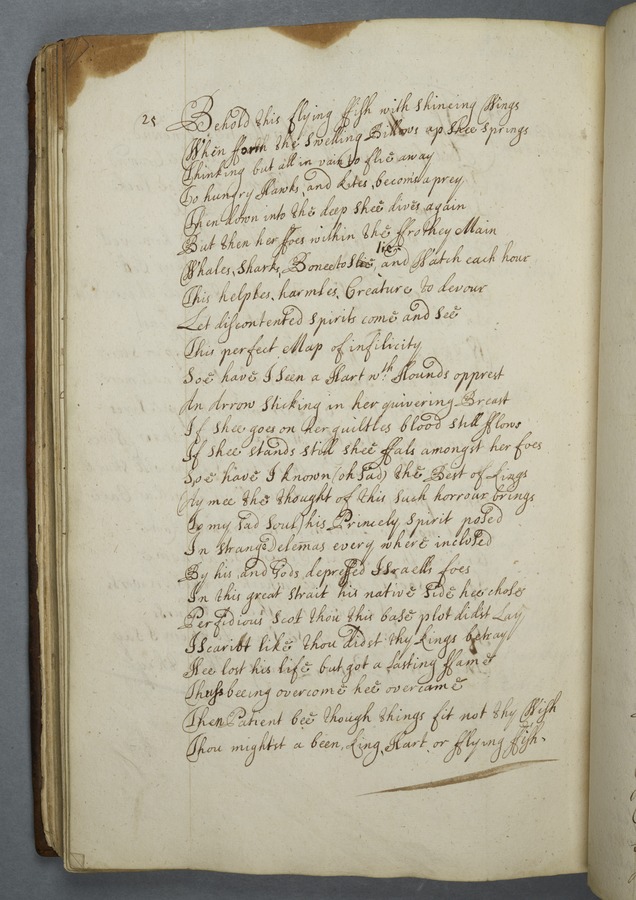 25 Behold this flying ffish with shineing Wings
When forth the swelling Billows up shee springs
Thinking but all in vain to flie away
To hungry Hawks, and Kites, becoms a prey
Then down into the deep shee dives again
But then her ffoes within the ffrothey Main
Whales, Sharks, Boneetoes lie, and Watch each hour
This helples, harmles, Creature to devour
Let discontented spirits come and see
This perfect Map of infilicity
Soe have I seen a Hart wth Hounds opprest
An Arrow sticking in her quivering Breast
If shee goes on her guiltles blood still fflows
If shee stands still shee ffals amongst her foes
Soe have I known (oh sad) the Best of Kings
(Ay mee the thought of this such horrour brings
To my sad soul) his Princely spirit posed
In strange Delemas every where inclosed
By his, and Gods, depressed Israells foes
In this great strait his native side hee chose
Perfidious Scot thou this base plot didst Lay
Iscariot like thou didst thy Kings betray
Hee lost his life but got a Lasting ffame
Thuss beeing overcome hee overcame
Then Patient bee though things fit not thy Wish
Thou mightst a been, King, Hart, or fflying ffish.